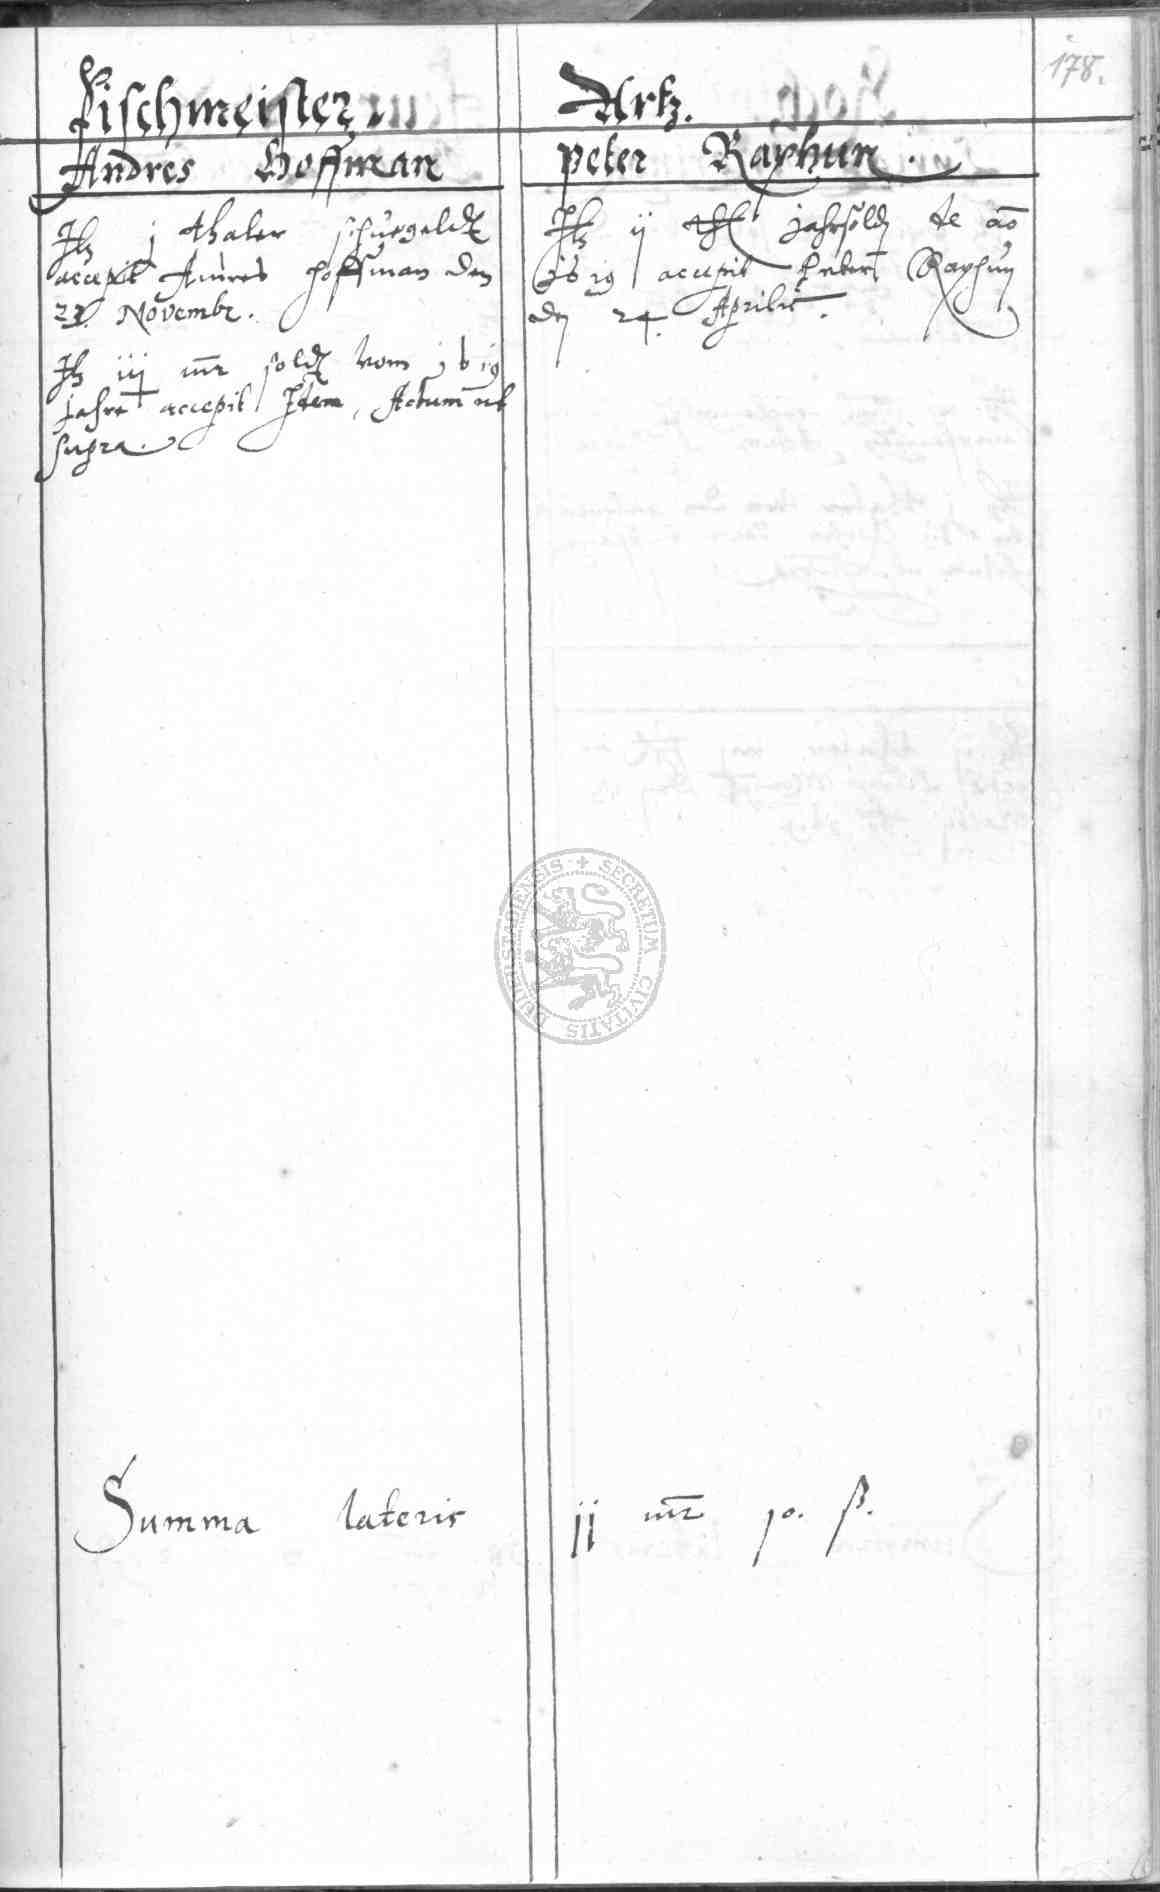 178.
Fischmeister
Andres Hoffman
Itz j thaler schuegeldt
accepit Andres Hoffman den
27. Novembr.
Itz iij mr soldt vom 1619
jahre accepit Idem, Actum ut
supra.
Artz.
peter Rayhun.
Itz ij thl jahrsoldt de ao
1619 accepit Peter Rayhun
den 24. Aprilis.
Summa lateris ij mr 10. ß.
SECRETUM CIVITATIS DUDERSTADIENSIS